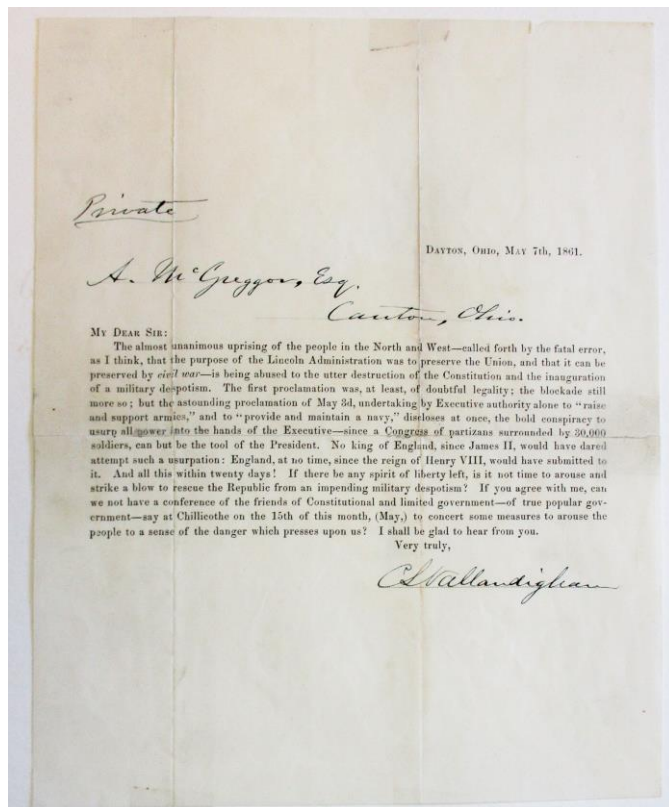 Private
DAYTON, OHIO, MAY 7th, 1861.
A. McGreggor, Esq.
Canton, Ohio.
MY DEAR SIR:
The almost unanimous uprising of the people in the North and West—called forth by the fatal error,
as I think, that the purpose of the Lincoln Administration was to preserve the Union, and that it can be
preserved by civil war—is being abused to the utter destruction of the Constitution and the inauguration
of a military despotism. The first proclamation was, at least, of doubtful legality; the blockade still
more so; but the astounding proclamation of May 3d, undertaking by Executive authority alone to "raise
and support armies," and to "provide and maintain a navy," discloses at once, the bold conspiracy to
usurp all power into the hands of the Executive—since a Congress of partizans surrounded by 30,000
soldiers, can but be the tool of the President. No king of England, since James II, would have dared
attempt such a usurpation: England, at no time, since the reign of Henry VIII, would have submitted to
it. And all this within twenty days! If there be any spirit of liberty left, is it not time to arouse and
strike a blow to rescue the Republic from an impending military despotism? If you agree with me, can
we not have a conference of the friends of Constitutional and limited government—of true popular gov-
ernment—say at Chillicothe on the 15th of this month, (May,) to concert some measures to arouse the
people to a sense of the danger which presses upon us? I shall be glad to hear from you.
Very truly,
C L Vallandigham